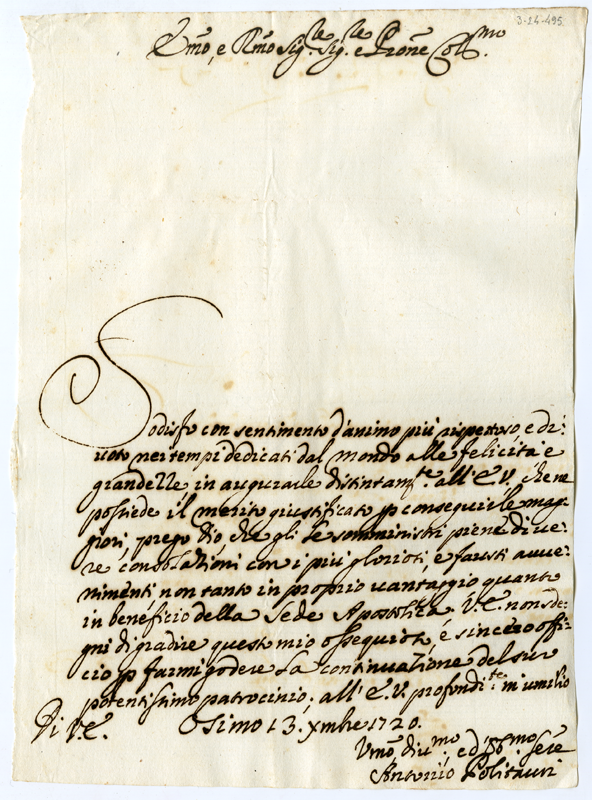 3-14-495.
Emo, e Rmo Sig.re Sig.re e Prone Colmo.
Sodisfo con sentimento d'animo più rispettoso, e di:
uoto nei tempi dedicati dal mondo alle felicità e
grandezze in augurarle distintamte. all' E.V. che ne
possiede il merito giustificato p conseguirle mag:
giori, prego Dio che gli le somministri piene di ue:
re consolationi con i più gloriosi, e fausti auue:
nimenti non tanto in proprio uantaggio quanto
in beneficio della Sede Apostolica. V.E. non sde:
gni di gradire questo mio ossequioso, e sincero offi:
cio p farmi godere la continuatione del suo
potentissimo patrocinio; all' E.V. profondte. m'umilio
Di V.E. Osimo 13. Xmbre 1720.
Vmo. diumo. ed
Antonio